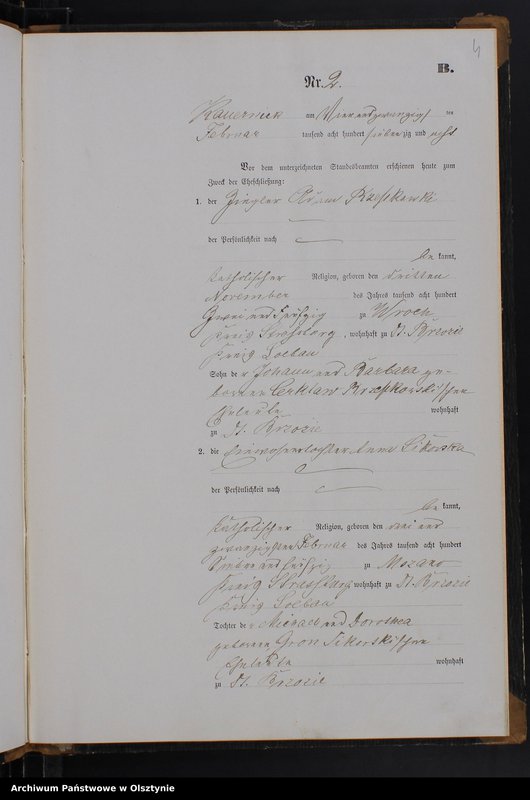 4
B.
Nr. 2.
Kauernick am Vier und zwanzigsten
Februar tausend acht hundert siebenzig und acht
Vor dem unterzeichneten Standesbeamten erschienen heute zum
Zweck der Eheschließung:
1. der Ziegler Adam
der Persönlichkeit nach
be kannt,
katholischer Religion, geboren den dritten
November des Jahres tausend acht hundert
zwei und fünfzig zu Wrock
Kreis Strasburg, wohnhaft zu Kl. Brzozie
Kreis Loebau
Sohn der Johann und Barbara ge-
borenen schen
Eheleute wohnhaft
zu Kl. Brzozie
2. die Einwohnertochter Anna Sikorska
der Persönlichkeit nach
be kannt,
katholischer Religion, geboren den zwei und
zwanzigsten Februar des Jahres tausend acht hundert
und fünfzig zu
Kreis Strasburg wohnhaft zu Kl. Brzozie
Kreis Loebau
Tochter der Michael und Dorothea
geborene Gron Sikorskischen
Eheleute wohnhaft
zu Kl. Brzozie
Archiwum Państwowe w Olsztynie